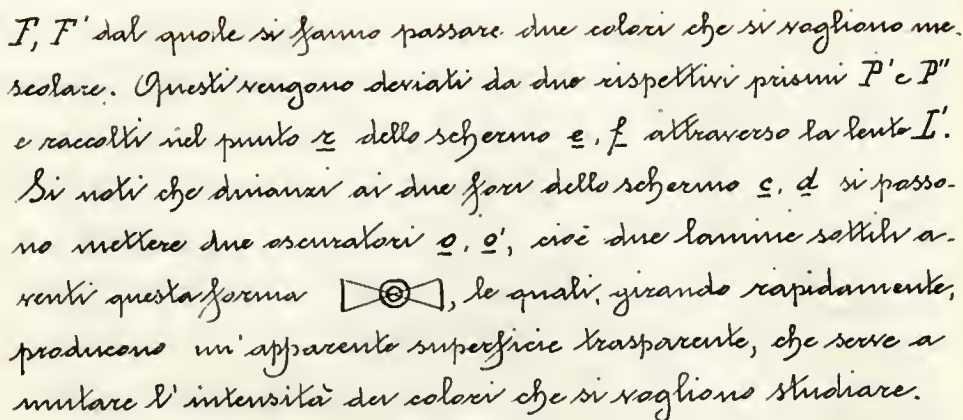 F, F' dal quale si fanno passare due colori che si vogliono me-
scolare. Questi vengono deviati da due rispettivi prismi P' e P''
e raccolti nel punto r dello schermo e, f attraverso la lente L'.
Si noti che dinanzi ai due fori dello schermo c, d si posso-
no mettere due oscuratori o, o', cioè due lamine sottili a-
venti questa forma , le quali, girando rapidamente,
producono un'apparente superficie trasparente, che serve a
mutare l'intensità dei colori che si vogliono studiare.